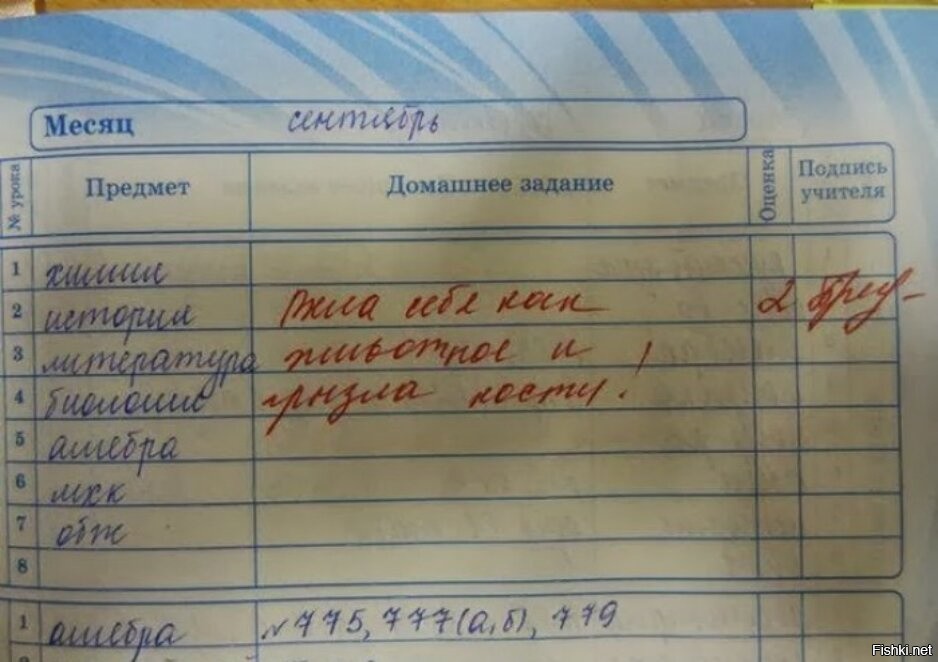 Месяц сентябрь
№ урока Предмет Домашнее задание Оценка Подпись учителя
1 химия
2 история Вела себя как 2
3 литература животное и
4 биология грызла кости!
5 алгебра
6 мхк
7 обж
8
1 алгебра №775, 777(а,б), 779
Fishki.net